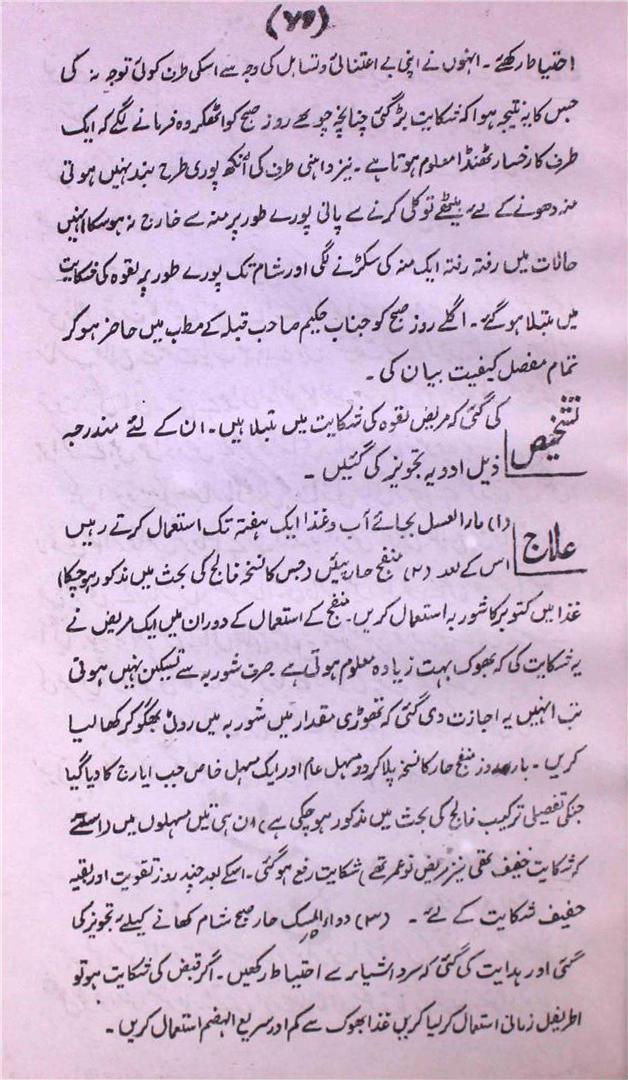 (۷۶)
احتیاط رکھئے۔ انہوں نے اپنی بے اعتنائی و تساہل کی وجہ سے اسکی طرف کوئی توجہ نہ کی
جس کا یہ نتیجہ ہوا کہ شکایت بڑھ گئی چنانچہ چوتھے روز صبح کو اٹھکر وہ فرمانے لگے کہ ایک
طرف کا رخسار ٹھنڈا معلوم ہوتا ہے۔ نیز داہنی طرف کی آنکھ پوری طرح بند نہیں ہوتی
منہ دھونے کے لئے بیٹھے تو کلی کرنے سے پانی پورے طور پر منہ سے خارج نہ ہو سکا انہیں
حالات میں رفتہ رفتہ ایک منہ کی سکڑنے لگی اور شام تک پورے طور پر لقوہ کی شکایت
میں مبتلا ہو گئے۔ اگلے روز صبح کو جناب حکیم صاحب قبلہ کے مطب میں حاضر ہو کر
تمام مفصل کیفیت بیان کی۔
تشخیص کی گئی کہ مریض لقوہ کی شکایت میں مبتلا ہیں۔ ان کے لئے مندرجہ
ذیل ادویہ تجویز کی گئیں۔
علاج (۱) ماء العسل بجائے آب و غذا ایک ہفتہ تک استعمال کرتے رہیں
اس کے بعد (۲) منضج حار پئیں (جس کا نسخہ فالج کی بحث میں مذکور ہو چکا)
غذا میں کبوتر کا شوربہ استعمال کریں۔ منضج کے استعمال کے دوران میں ایک مریض نے
یہ شکایت کی کہ بھوک بہت زیادہ معلوم ہوتی ہے صرف شوربہ سے تسکین نہیں ہوتی
تب انہیں یہ اجازت دی گئی کہ تھوڑی مقدار میں شوربہ میں روٹی بھگو کر کھا لیا
کریں۔ بارہ روز منضج حار کا نسخہ پلا کر دو مسہل عام اور ایک مسہل خاص حب ایارج کا دیا گیا
جنکی تفصیلی ترکیب فالج کی بحث میں مذکور ہو چکی ہے) ان ہی تین مسہلوں میں (اسلئے
کہ شکایت خفیف تھی نیز مریض نو عمر تھے) شکایت رفع ہو گئی۔ اسکے بعد چند روز تقویت اور بقیہ
خفیف شکایت کے لئے۔ (۳) دواء المسک حار صبح شام کھانے کیلئے تجویز کی
گئی اور ہدایت کی گئی کہ سرد اشیار سے احتیاط رکھیں۔ اگر قبض کی شکایت ہو تو
اطریفل زمانی استعمال کر لیا کریں غذا بھوک سے کم اور سریع الہضم استعمال کریں۔